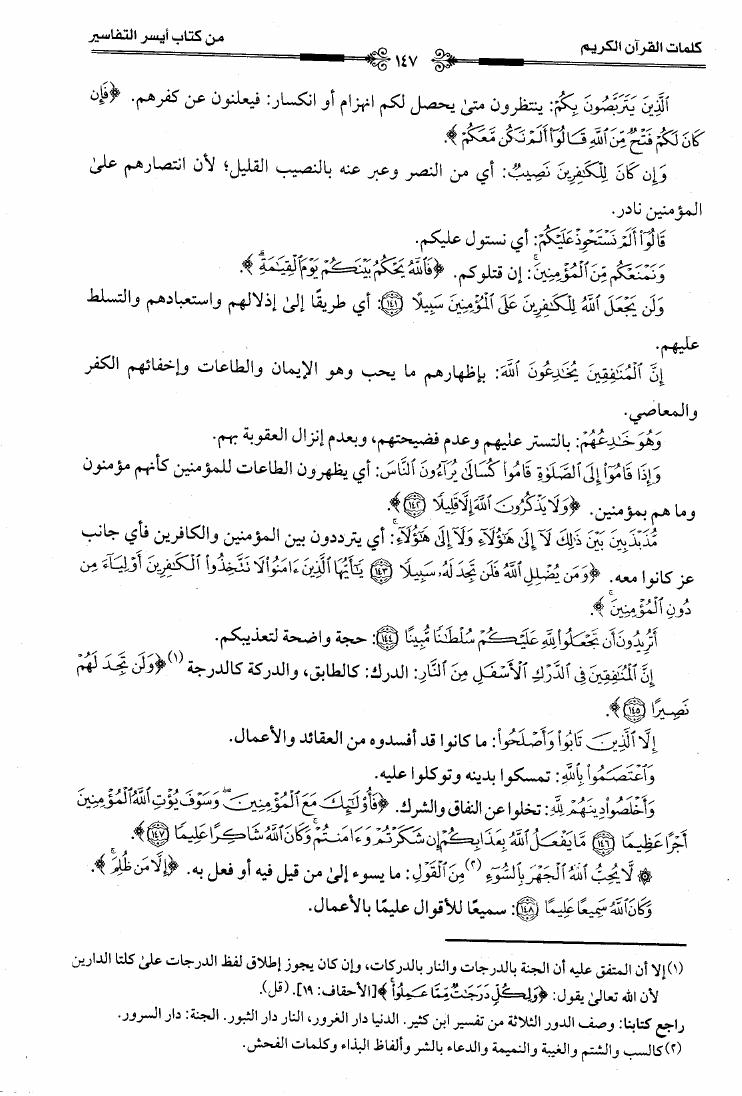 كلمات القرآن الكريم ١٤٧ من كتاب أيسر التفاسير
ٱلَّذِينَ يَتَرَبَّصُونَ بِكُمْ: ينتظرون متىٰ يحصل لكم انهزام أو انكسار: فيعلنون عن كفرهم. ﴿فَإِن
كَانَ لَكُمْ فَتْحٌ مِّنَ ٱللَّهِ قَالُوٓا۟ أَلَمْ نَكُن مَّعَكُمْ﴾.
وَإِن كَانَ لِلْكَٰفِرِينَ نَصِيبٌ: أي من النصر وعبر عنه بالنصيب القليل؛ لأن انتصارهم علىٰ
المؤمنين نادر.
قَالُوٓا۟ أَلَمْ نَسْتَحْوِذْ عَلَيْكُمْ: أي نستول عليكم.
وَنَمْنَعْكُم مِّنَ ٱلْمُؤْمِنِينَ ۚ: إن قتلوكم. ﴿فَٱللَّهُ يَحْكُمُ بَيْنَكُمْ يَوْمَ ٱلْقِيَٰمَةِ ۗ﴾.
وَلَن يَجْعَلَ ٱللَّهُ لِلْكَٰفِرِينَ عَلَى ٱلْمُؤْمِنِينَ سَبِيلًا ١٤١: أي طريقًا إلىٰ إذلالهم واستعبادهم والتسلط
عليهم.
إِنَّ ٱلْمُنَٰفِقِينَ يُخَٰدِعُونَ ٱللَّهَ: بإظهارهم ما يحب وهو الإيمان والطاعات وإخفائهم الكفر
والمعاصي.
وَهُوَ خَٰدِعُهُمْ: بالتستر عليهم وعدم فضيحتهم، وبعدم إنزال العقوبة بهم.
وَإِذَا قَامُوٓا۟ إِلَى ٱلصَّلَوٰةِ قَامُوا۟ كُسَالَىٰ يُرَآءُونَ ٱلنَّاسَ: أي يظهرون الطاعات للمؤمنين كأنهم مؤمنون
وما هم بمؤمنين. ﴿وَلَا يَذْكُرُونَ ٱللَّهَ إِلَّا قَلِيلًا ١٤٢﴾.
مُّذَبْذَبِينَ بَيْنَ ذَٰلِكَ لَآ إِلَىٰ هَٰٓؤُلَآءِ وَلَآ إِلَىٰ هَٰٓؤُلَآءِ ۚ: أي يترددون بين المؤمنين والكافرين فأي جانب
عز كانوا معه. ﴿وَمَن يُضْلِلِ ٱللَّهُ فَلَن تَجِدَ لَهُۥ سَبِيلًا ١٤٣ يَٰٓأَيُّهَا ٱلَّذِينَ ءَامَنُوا۟ لَا تَتَّخِذُوا۟ ٱلْكَٰفِرِينَ أَوْلِيَآءَ مِن
دُونِ ٱلْمُؤْمِنِينَ ۚ﴾.
أَتُرِيدُونَ أَن تَجْعَلُوا۟ لِلَّهِ عَلَيْكُمْ سُلْطَٰنًا مُّبِينًا ١٤٤: حجة واضحة لتعذيبكم.
إِنَّ ٱلْمُنَٰفِقِينَ فِى ٱلدَّرْكِ ٱلْأَسْفَلِ مِنَ ٱلنَّارِ: الدرك: كالطابق، والدركة كالدرجة (١) ﴿وَلَن تَجِدَ لَهُمْ
نَصِيرًا ١٤٥﴾.
إِلَّا ٱلَّذِينَ تَابُوا۟ وَأَصْلَحُوا۟: ما كانوا قد أفسدوه من العقائد والأعمال.
وَٱعْتَصَمُوا۟ بِٱللَّهِ: تمسكوا بدينه وتوكلوا عليه.
وَأَخْلَصُوا۟ دِينَهُمْ لِلَّهِ: تخلوا عن النفاق والشرك. ﴿فَأُو۟لَٰٓئِكَ مَعَ ٱلْمُؤْمِنِينَ ۖ وَسَوْفَ يُؤْتِ ٱللَّهُ ٱلْمُؤْمِنِينَ
أَجْرًا عَظِيمًا ١٤٦ مَّا يَفْعَلُ ٱللَّهُ بِعَذَابِكُمْ إِن شَكَرْتُمْ وَءَامَنتُمْ ۚ وَكَانَ ٱللَّهُ شَاكِرًا عَلِيمًا ١٤٧﴾.
۞ لَّا يُحِبُّ ٱللَّهُ ٱلْجَهْرَ بِٱلسُّوٓءِ (٢) مِنَ ٱلْقَوْلِ: ما يسوء إلىٰ من قيل فيه أو فعل به. ﴿إِلَّا مَن ظُلِمَ ۚ﴾.
وَكَانَ ٱللَّهُ سَمِيعًا عَلِيمًا ١٤٨: سميعًا للأقوال عليمًا بالأعمال.
(١) إلا أن المتفق عليه أن الجنة بالدرجات والنار بالدركات، وإن كان يجوز إطلاق لفظ الدرجات علىٰ كلتا الدارين
لأن الله تعالىٰ يقول: ﴿وَلِكُلٍّ دَرَجَٰتٌ مِّمَّا عَمِلُوا۟ ۖ﴾ [الأحقاف: ١٩]. (قل).
راجع كتابنا: وصف الدور الثلاثة من تفسير ابن كثير. الدنيا دار الغرور، النار دار الثبور. الجنة: دار السرور.
(٢) كالسب والشتم والغيبة والنميمة والدعاء بالشر وألفاظ البذاء وكلمات الفحش.